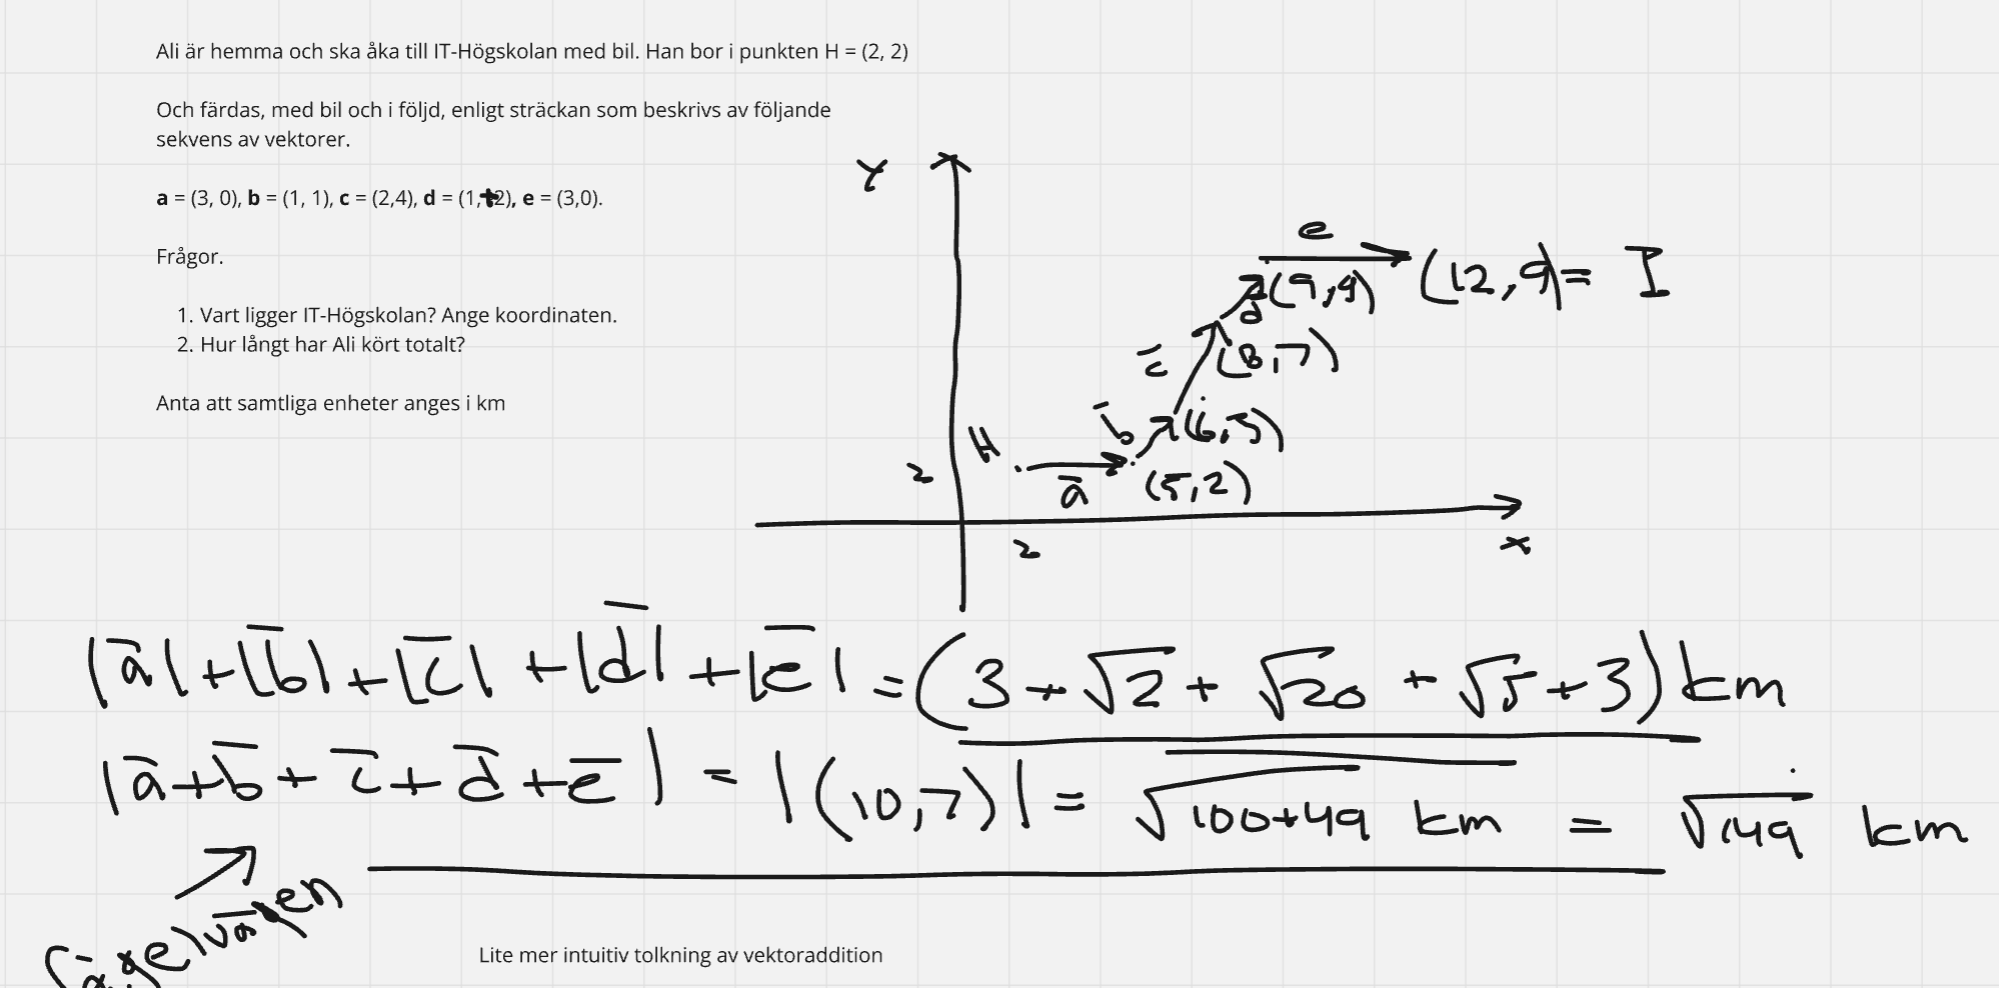 Ali är hemma och ska åka till IT-Högskolan med bil. Han bor i punkten H = (2, 2)
Och färdas, med bil och i följd, enligt sträckan som beskrivs av följande
sekvens av vektorer.
a = (3, 0), b = (1, 1), c = (2,4), d = (1,+2), e = (3,0).
Frågor.
1. Vart ligger IT-Högskolan? Ange koordinaten.
2. Hur långt har Ali kört totalt?
Anta att samtliga enheter anges i km
Y
e
(9,9) (12,9) = I
d
c̄ (8,7)
b̄ (6,3)
2 H
ā (5,2)
2 x
|ā|+|b̄|+|c̄|+|d̄|+|ē| = (3+√2+√20+√5+3) km
|ā+b̄+c̄+d̄+ē| = |(10,7)| = √100+49 km = √149 km
fågelvägen
Lite mer intuitiv tolkning av vektoraddition